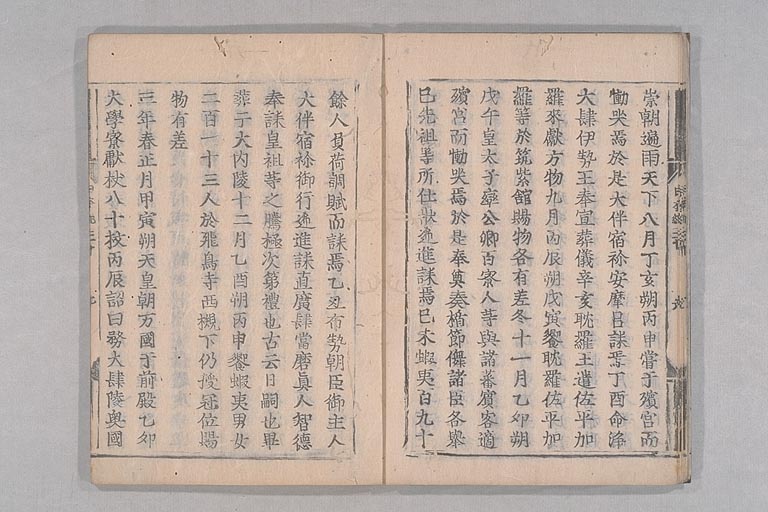 崇朝遍雨天下八月丁亥朔丙申嘗于殯宮而
慟哭焉於是大伴宿祢安摩呂誄焉丁酉命淨
大肆伊勢王奉宣葬儀辛亥耽羅王遣佐平加
羅來獻方物九月丙辰朔戊寅饗耽羅佐平加
羅等於筑紫館賜物各有差冬十一月乙卯朔
戊午皇太子率公卿百寮人等與諸蕃賓客適
殯宮而慟哭焉於是奉奠奏楯節儛諸臣各舉
己先祖等所仕狀逓進誄焉己未蝦夷百九十
餘人負荷調賦而誄焉乙丑布勢朝臣御主人
大伴宿祢御行逓進誄直廣肆當麻真人智德
奉誄皇祖等之騰極次第禮也古云日嗣也畢
葬于大内陵十二月乙酉朔丙申饗蝦夷男女
二百一十三人於飛鳥寺西槻下仍授冠位賜
物有差
三年春正月甲寅朔天皇朝万國于前殿乙卯
大學寮獻杖八十枚丙辰詔曰務大肆陵奥國